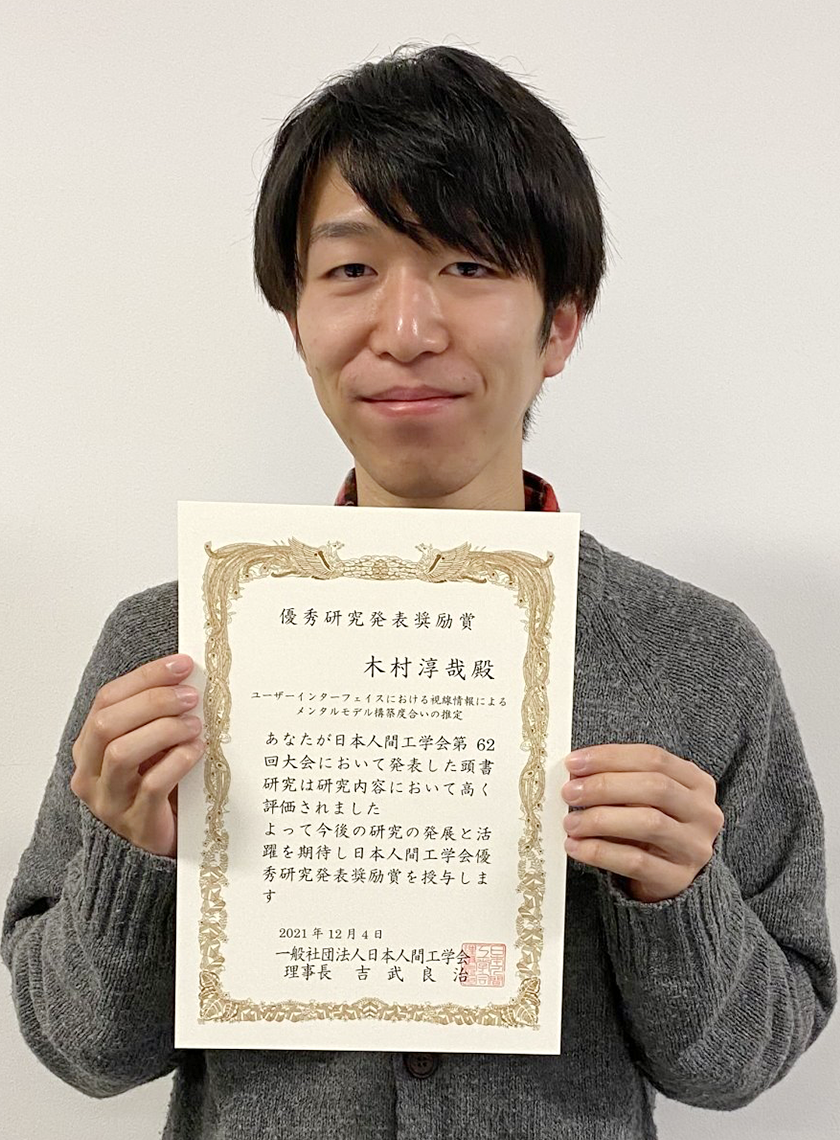 優秀研究発表奨励賞
木村淳哉殿
ユーザーインターフェイスにおける視線情報による
メンタルモデル構築度合いの推定
あなたが日本人間工学会第 62
回大会において発表した頭書
研究は研究内容において高く
評価されました
よって今後の研究の発展と活
躍を期待し日本人間工学会優
秀研究発表奨励賞を授与しま
す
2021年12月4日
一般社団法人日本人間工学会
理事長 吉武良治